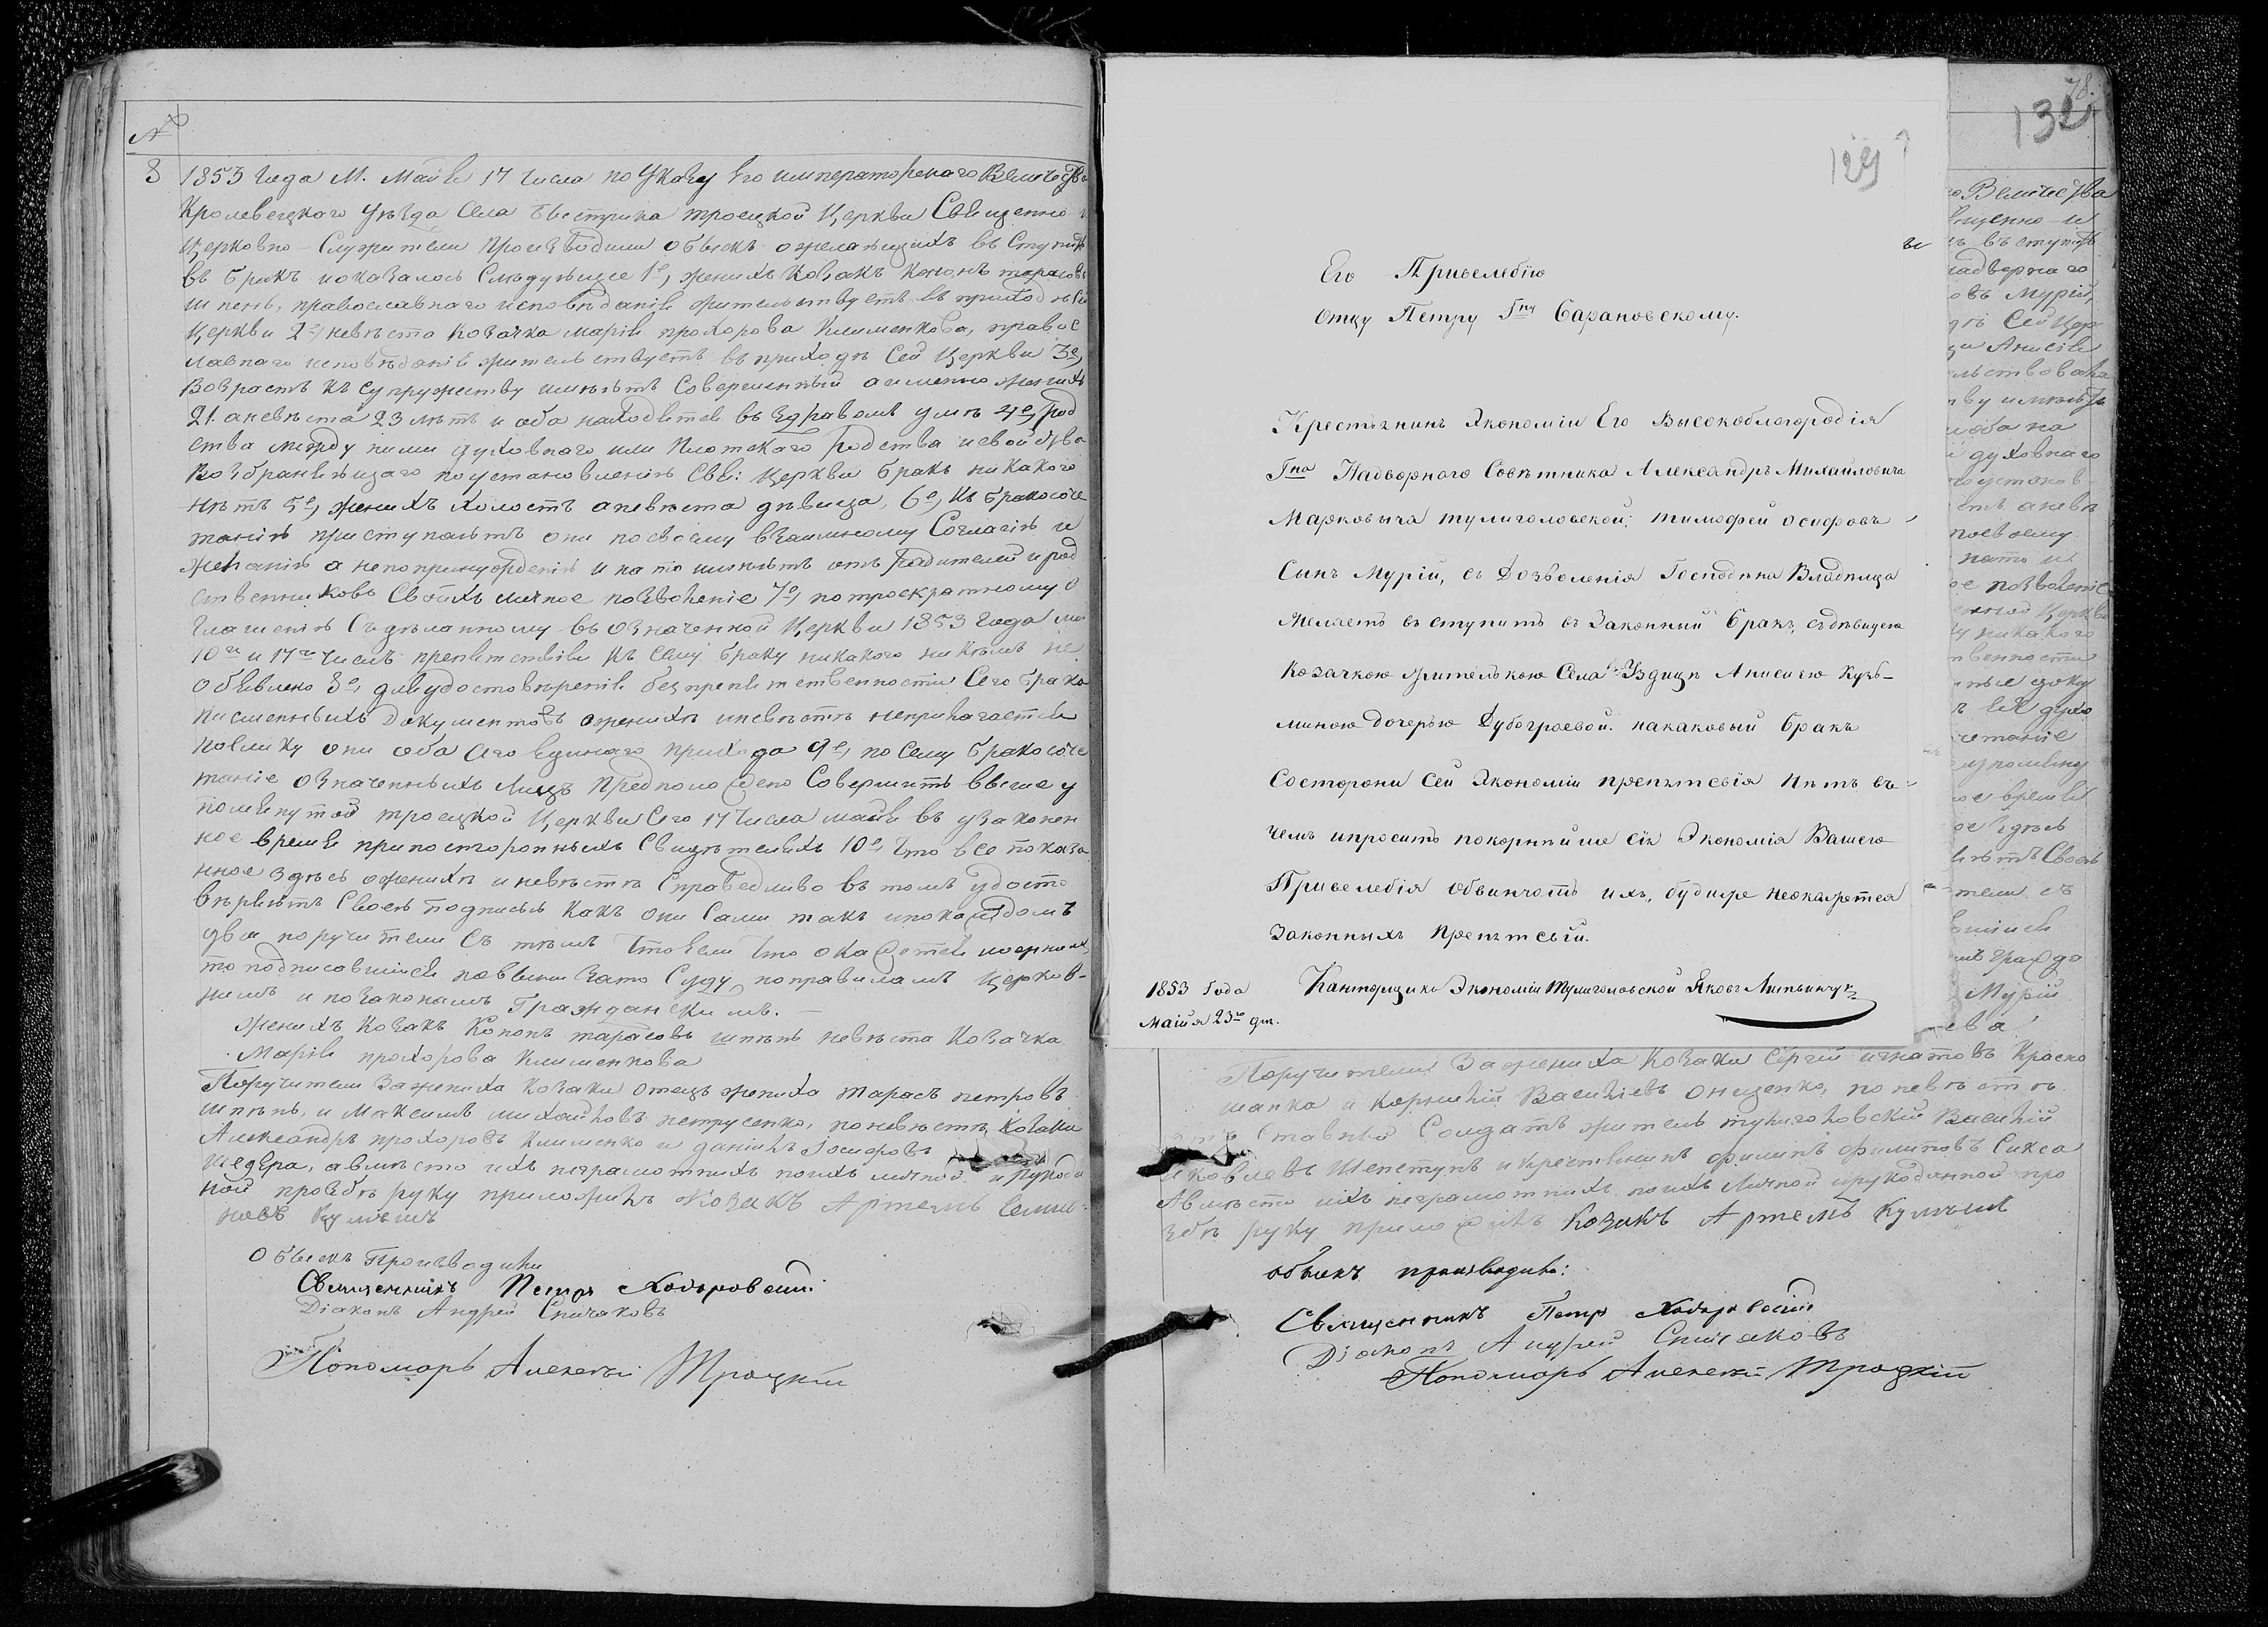 №
8
1853 года М. Маія 17 числа по Указу Его императорскаго Величества
Кролевецкаго Уезда Села Быстрика троецкой Церкви Священно и
Церковно-Служители производили обыск о желающихъ въ Ступить
въ бракъ и оказалось Следующее 1е, женихъ Козакъ Кононъ тарасовъ
шпень, православнаго исповеданія жительствуетъ въ приходе Сей
Церкви 2е, невеста Козачка марія прохорова Клименкова, правос
лавнаго исповеданія жительствуетъ въ приходе Сей Церкви 3е,
Возрастъ къ Супружеству имеютъ Совершенный а именно женихъ
21. а невеста 23 летъ и оба находятся въ здравомъ уме 4е, Род
ства между ними духовнаго или Плотскаго Родства и свойства
Возбраняющаго по установленію Свя: Церкви бракъ никакого
нетъ 5е, женихъ холостъ а невеста девица, 6е, Къ бракосоче
танію приступаютъ они по своему взаимному Согласію и
желанію а не по принужденію и на то имеютъ отъ Родителей и род
ственниковъ Своихъ личное позволеніе 7е, по троекратному о
глашенію Сделанному въ означенной Церкви 1853 года ма
10го и 17го числъ препятствія къ Сему браку никакого никемъ не
объявлено 8е, для удостоверенія безпрепятственности Сего брака
писменныхъ документовъ о женихе и невесте неприлагается
поелику они оба Сего Единаго прихода 9е, по Сему бракосоче
таніе означенныхъ Лицъ Предположено Совершить в выше у
помянутой троецкой Церкви Сего 17 числа маія въ узаконен
ное время при постороннихъ Свидетеляхъ 10е, Что все показа
нное здесь о женихе и невесте Справедливо въ томъ удосто
веряютъ Своею подписью какъ они Сами такъ и по каждомъ
два поручители Съ темъ что если что окажется ложнымъ,
то подписавшіися повинни зато Суду по правиламъ Церков-
нымъ и по законамъ Гражданскимъ. —
женихъ Козакъ Кононъ тарасовъ шпень невеста Козачка
Марія прохорова Клименкова
Поручители За жениха козаки отецъ жениха тарасъ петровъ
шпень, и Максимъ михайловъ петрусенко, по невесте, Козаки
Александръ прохоровъ Клименко и даніилъ Іосифовъ
шедера, а вместо ихъ неграмотнихъ по ихъ личной и рукода
ной прозбе руку приложилъ Козакъ Артемъ Семио-
новъ Кулешъ
Обыскъ Производили
Священникъ Петръ Ходоровскій
Діаконъ Андрей Спичаковъ
Пономарь Алексей Троцкій
129
Его Привелебію
Отцу Петру Гну Барановскому.
Крестьянинъ Экономіи Его Высокоблагородія
Гна Надворнаго Советника Александръ Михайловича
Марковыча тулиголовской, тимофей осифовъ
Сынъ Мурій, съ Дозволенія Господина Владельца
желаетъ въ ступить въ Законный бракъ, съ девицею
Козачкою жителькою Села Уздицъ Анисіею Кузь-
миною дочерью Дубогроевой. на каковый бракъ
Состороны Сей Экономіи препятсвія Нетъ въ
чемъ и проситъ покорнейше сія Экономія Вашего
Привелебія Обвинчать ихъ, буди уже неокажется
Законныхъ Препятсвій.
1853 Года
Маія 23го дня.
Канторщикъ Экономіи Тулиголовской Яковъ Литвинчукъ
78.
132
Величества
Священно и
въ ступить
надворнаго
овъ Мурій,
Сей Цер
Анисія
ельствовала
духовнаго
установ
поевоему
позволеніе
Церкви
никакого
венности
четаніе
время
здесь
Своею
тели съ
вшися
гражда
Мурій
ева
Поручители За жениха Козаки Сергій игнатовъ Красно
шапка и Корнилій Василіевъ Онищенко, по невесте
Ставный Солдатъ житель тулиголовскій Василій
Яковлевъ Шепетунъ и крестянинъ филипъ филиповъ Сикса
А вместо ихъ неграмотнихъ по ихъ Личной и рукоданной про
збе руку приложилъ Козакъ Артемъ Кулешъ
обыскъ производили:
Священникъ Петръ Ходоровскій
Діаконъ Андрей Спичаковъ
Пономарь Алексей Троцкій